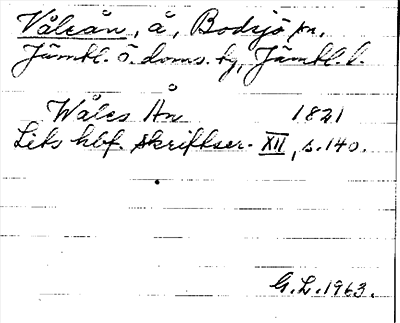 Vålån, å, Bodsjö sn,
Jämtl. ö. doms. tg, Jämtl. l.
Wåles Ån 1821
Lits hbf. skriftser. XII, s. 140.
G.L. 1963.